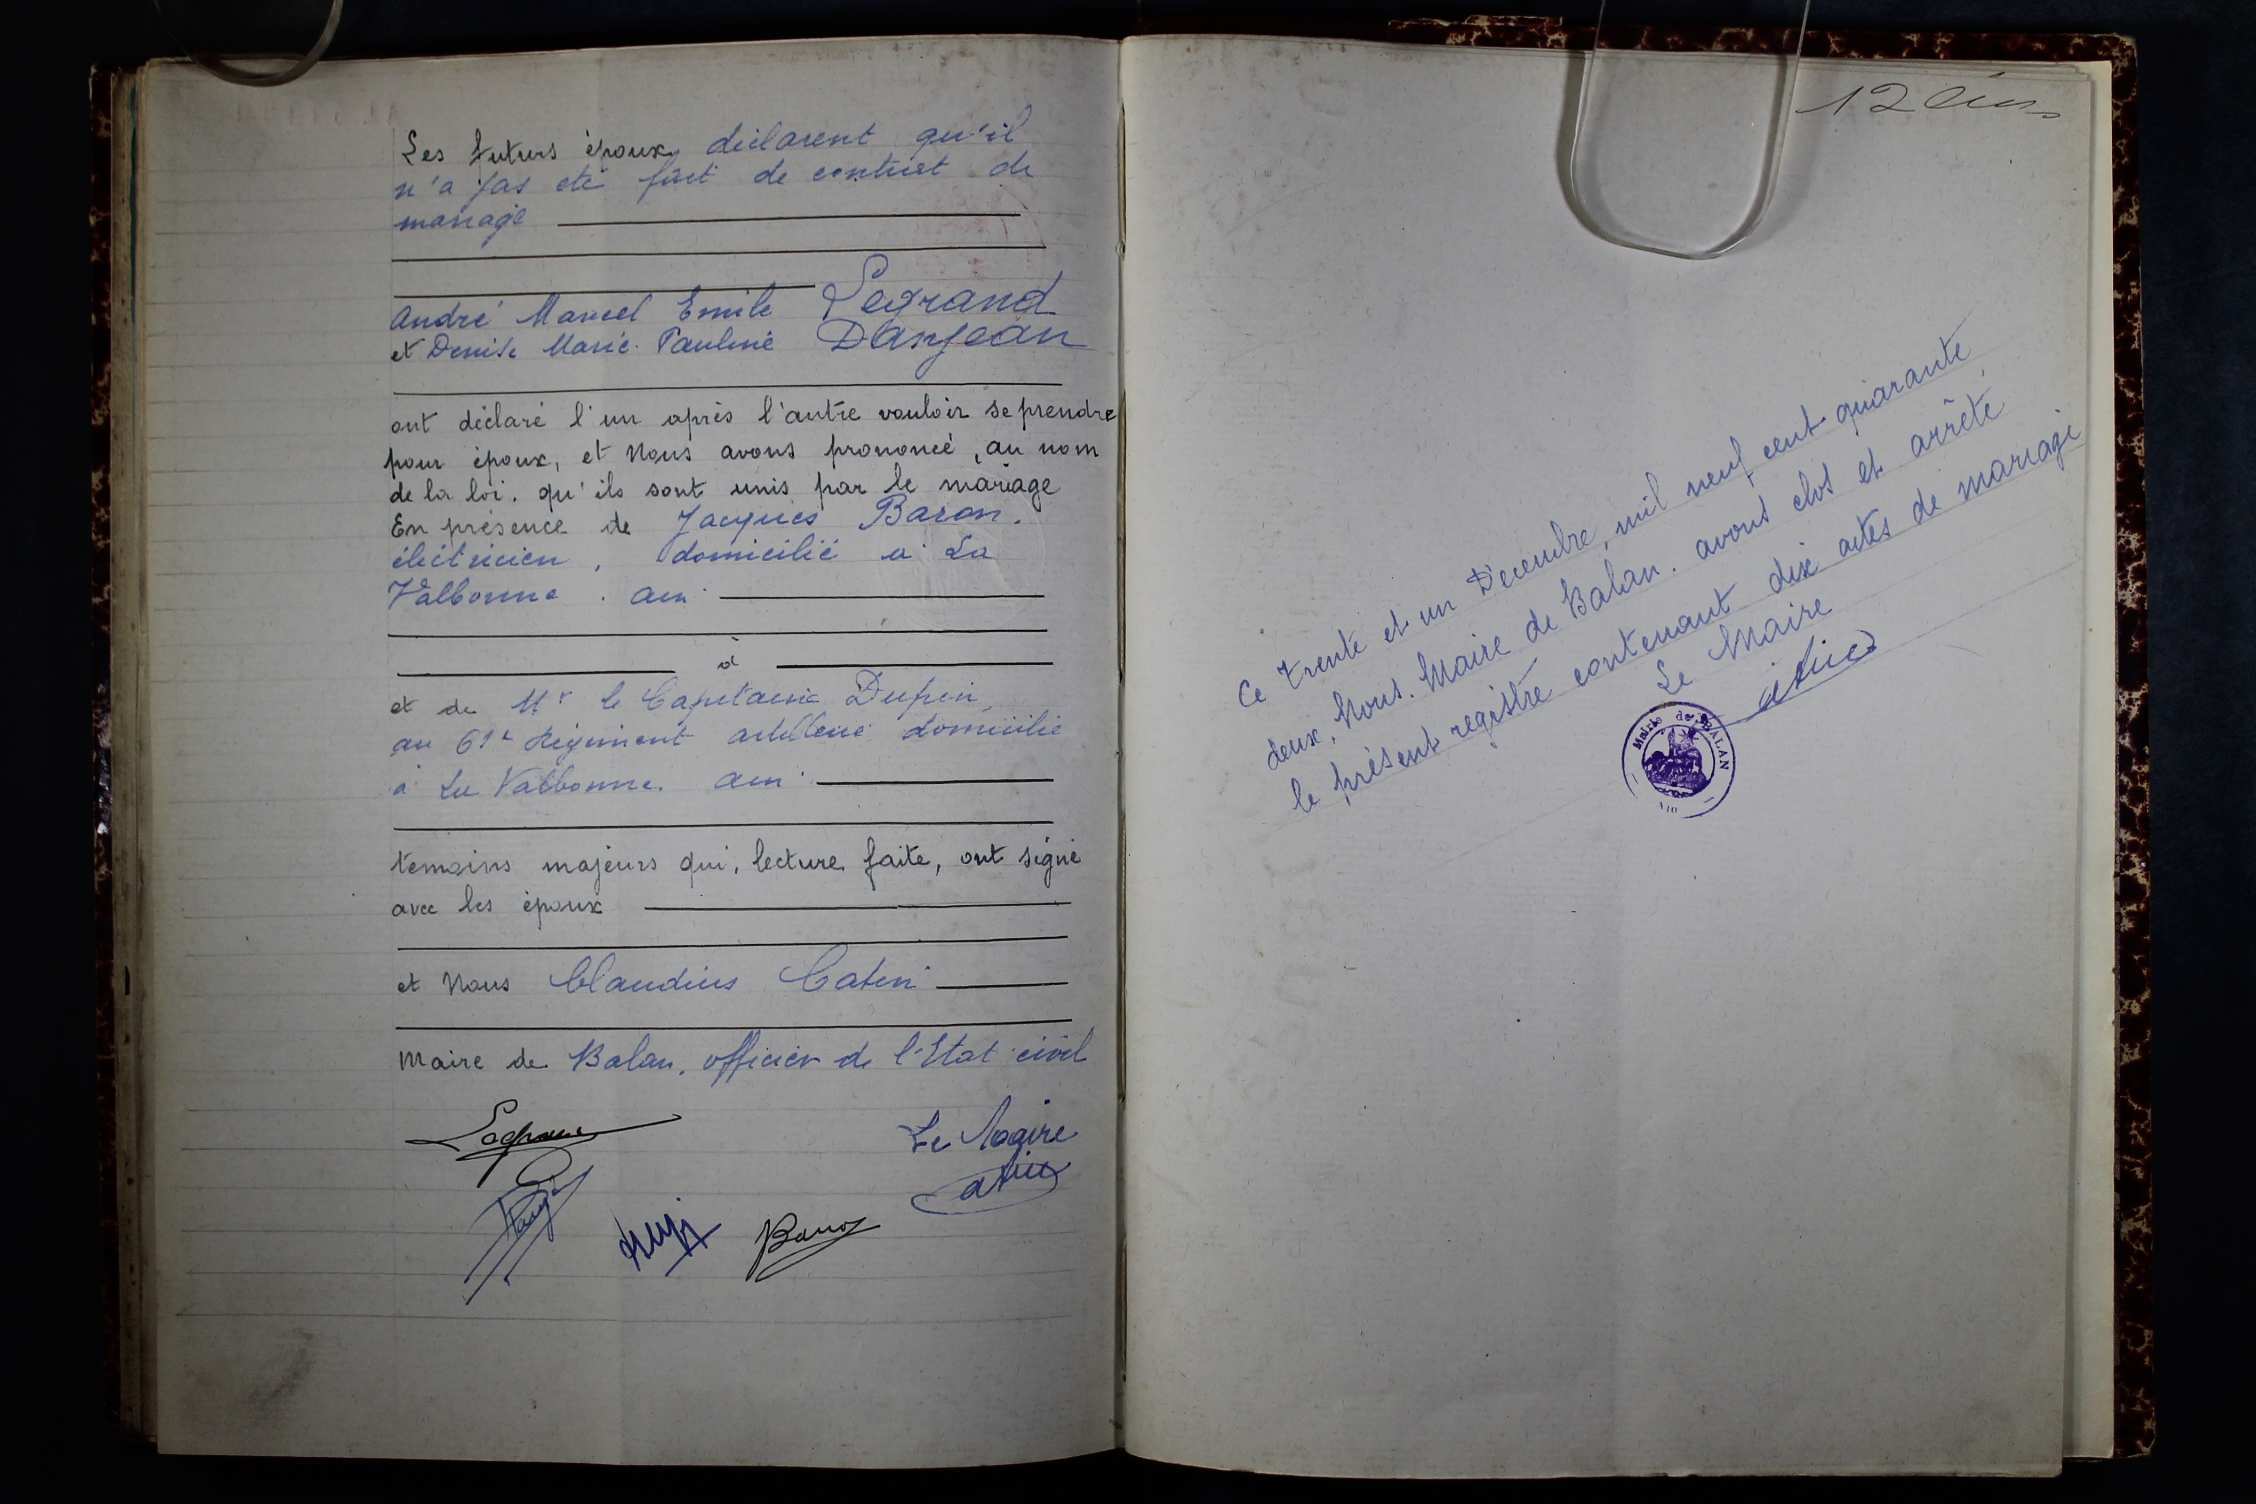 Les futurs époux déclarent qu'il
n'a pas été fait de contrat de
mariage
André Marcel Emile Legrand
et Denise Marie Pauline Danjean
ont déclaré l'un après l'autre vouloir se prendre
pour époux, et Nous avons prononcé, au nom
de la loi, qu'ils sont unis par le mariage
En présence de Jacques Baron,
électricien, domicilié à La
Valbonne. ain
à
et de Mr le Capitaine Dupin,
au 61e Régiment artillerie domicilié
à La Valbonne. ain
témoins majeurs qui, lecture faite, ont signé
avec les époux
et Nous Claudius Catin
Maire de Balan, officier de l'Etat civil
Legrand
Le Maire
Baron
12
Ce trente et un Décembre, mil neuf cent quarante
deux, Nous. Maire de Balan. avons clos et arrêté
le présent registre contenant dix actes de mariage
Le Maire
Mairie de BALAN